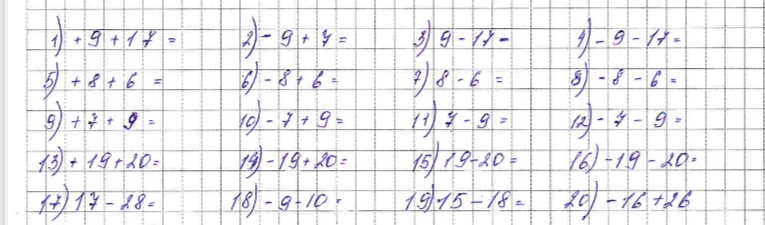 1) + 9 + 17 = 2) - 9 + 7 = 3) 9 - 17 - 4) - 9 - 17 =
5) + 8 + 6 = 6) - 8 + 6 = 7) 8 - 6 = 8) - 8 - 6 =
9) + 7 + 9 = 10) - 7 + 9 = 11) 7 - 9 = 12) - 7 - 9 =
13) + 19 + 20 = 14) - 19 + 20 = 15) 19 - 20 = 16) - 19 - 20 =
17) 17 - 28 = 18) - 9 - 10 · 19) 15 - 18 = 20) - 16 + 26